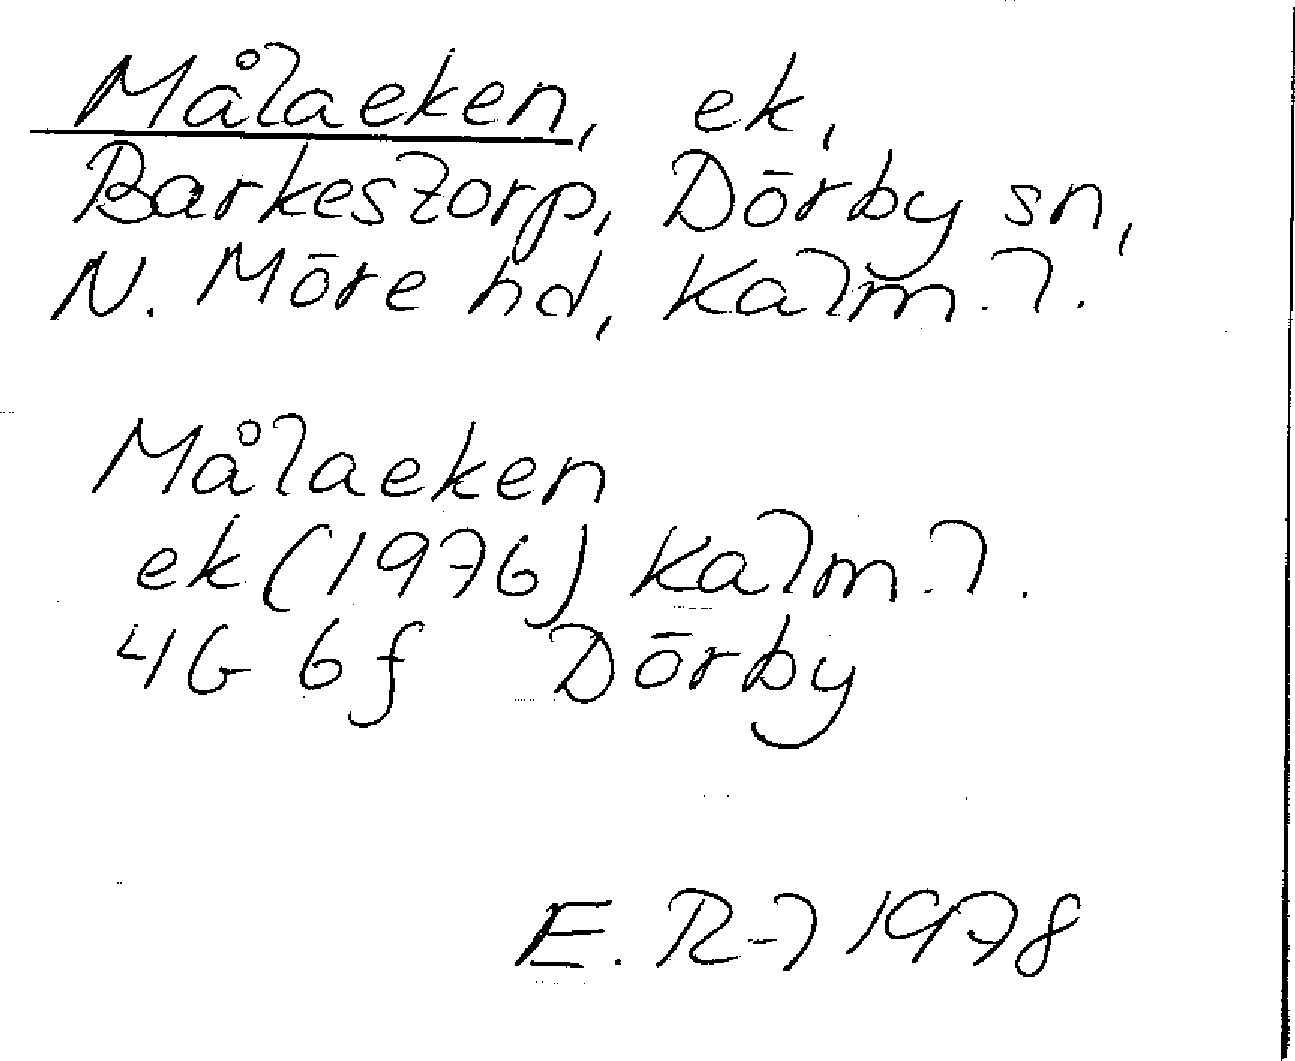 Målaeken, ek,
Barkestorp, Dörby sn,
N. Möre hd, Kalm. l.
Målaeken
ek (1976) Kalm. l.
4G 6f Dörby
E. R-l 1978